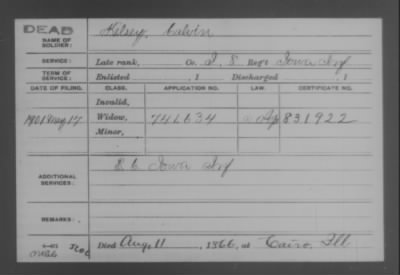 DEAD
NAME OF SOLDIER: Kelsey, Calvin
SERVICE: Late rank, Co. I, 8 Reg't Iowa Inf
TERM OF SERVICE: Enlisted , 1 Discharged , 1
DATE OF FILING. CLASS. APPLICATION NO. LAW. CERTIFICATE NO.
Invalid,
1901 Aug 17 Widow, 741634 831922
Minor,
ADDITIONAL SERVICES: Iowa Inf
REMARKS:
6-471
Died Aug. 11, 1866, at Cairo, Ill